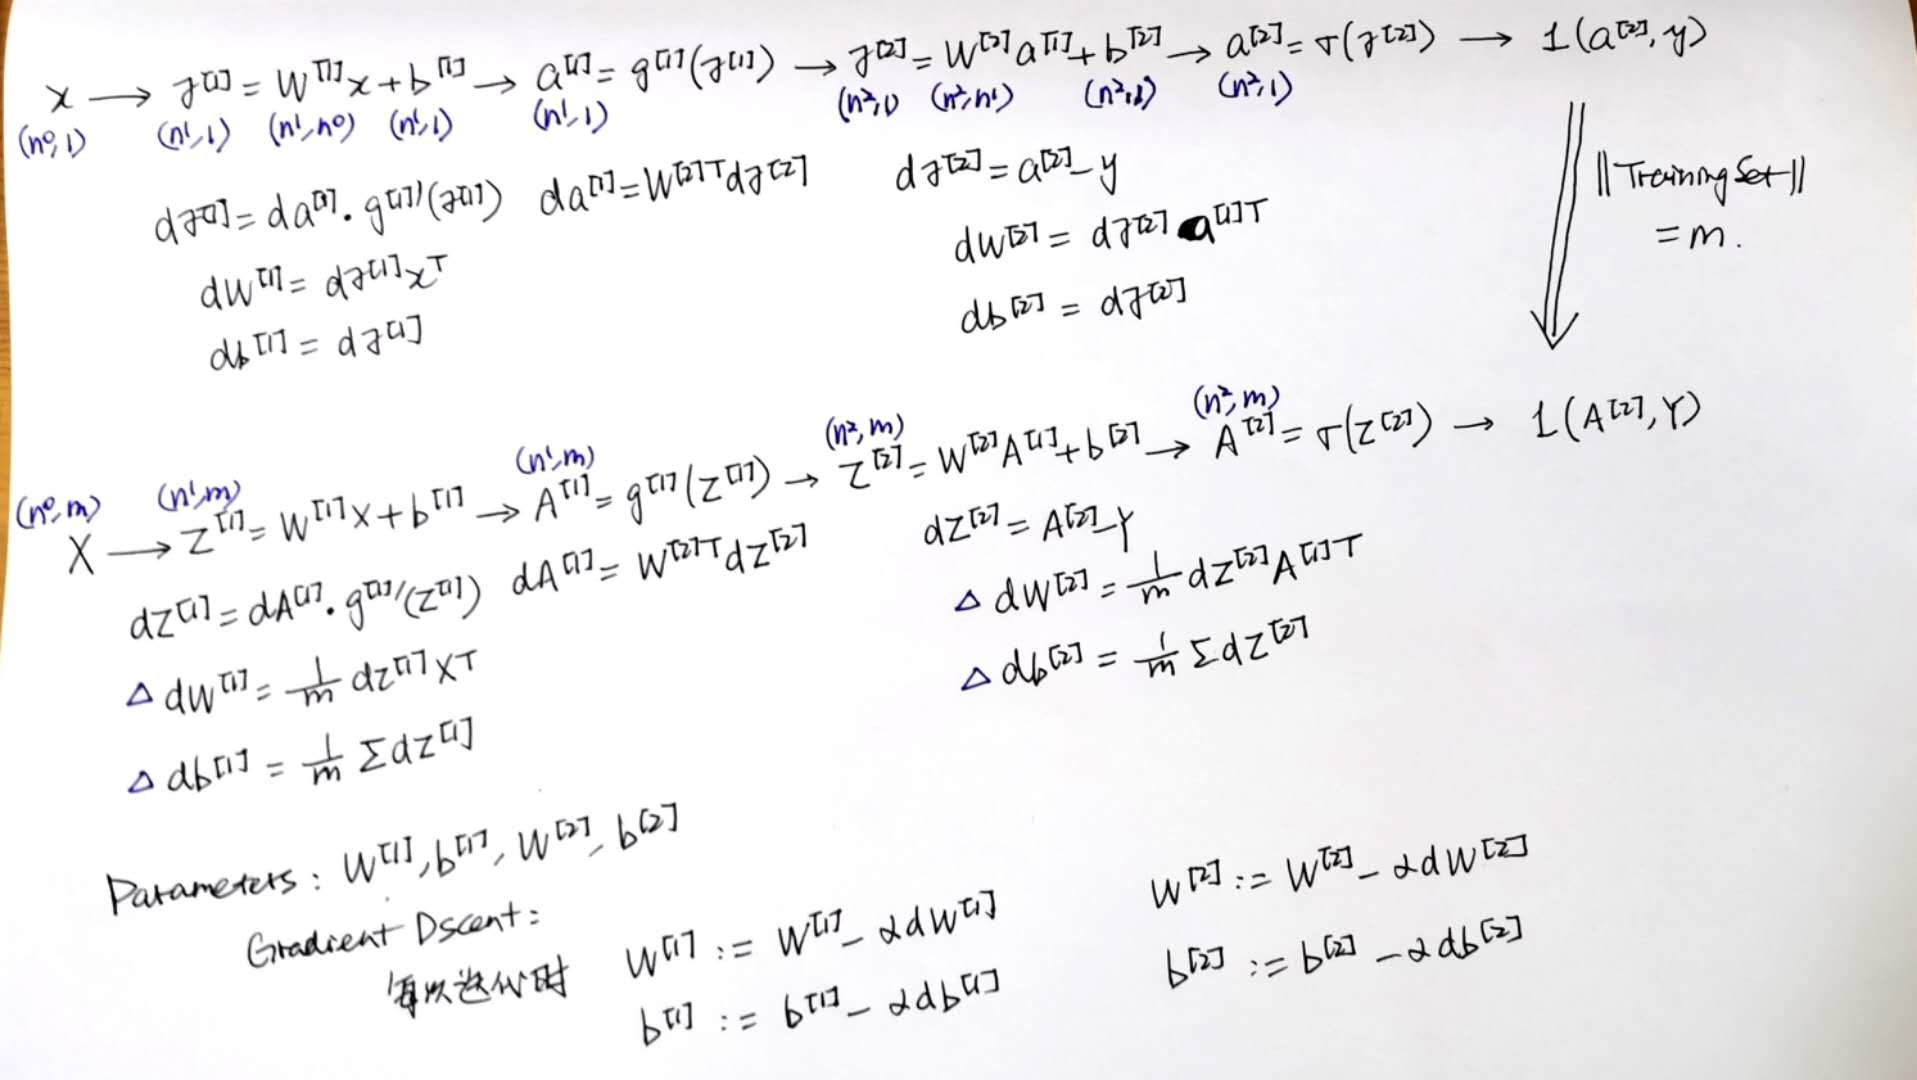 x → z^[1] = W^[1]x + b^[1] → a^[1] = g^[1](z^[1]) → z^[2] = W^[2]a^[1] + b^[2] → a^[2] = σ(z^[2]) → l(a^[2], y)
(n⁰,1) (n¹,1) (n¹,n⁰) (n¹,1) (n¹,1) (n²,1) (n²,n¹) (n²,1) (n²,1)
dz^[1] = da^[1] · g^[1]'(z^[1]) da^[1] = W^[2]T dz^[2] dz^[2] = a^[2] - y
||Training Set||
= m.
dW^[1] = dz^[1] x^T dW^[2] = dz^[2] a^[1]T
db^[1] = dz^[1] db^[2] = dz^[2]
(n⁰,m) (n¹,m) (n¹,m) (n²,m) (n²,m)
X → Z^[1] = W^[1]X + b^[1] → A^[1] = g^[1](Z^[1]) → Z^[2] = W^[2]A^[1] + b^[2] → A^[2] = σ(Z^[2]) → l(A^[2], Y)
dZ^[1] = dA^[1] · g^[1]'(Z^[1]) dA^[1] = W^[2]T dZ^[2] dZ^[2] = A^[2] - Y
△ dW^[1] = 1/m dZ^[1] X^T △ dW^[2] = 1/m dZ^[2] A^[1]T
△ db^[1] = 1/m Σ dZ^[1] △ db^[2] = 1/m Σ dZ^[2]
Parameters: W^[1], b^[1], W^[2], b^[2]
Gradient Dscent:
每次迭代时 W^[1] := W^[1] - αdW^[1] W^[2] := W^[2] - αdW^[2]
b^[1] := b^[1] - αdb^[1] b^[2] := b^[2] - αdb^[2]